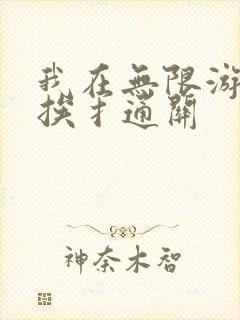 我在無限游
挨扌通關
神奈木智